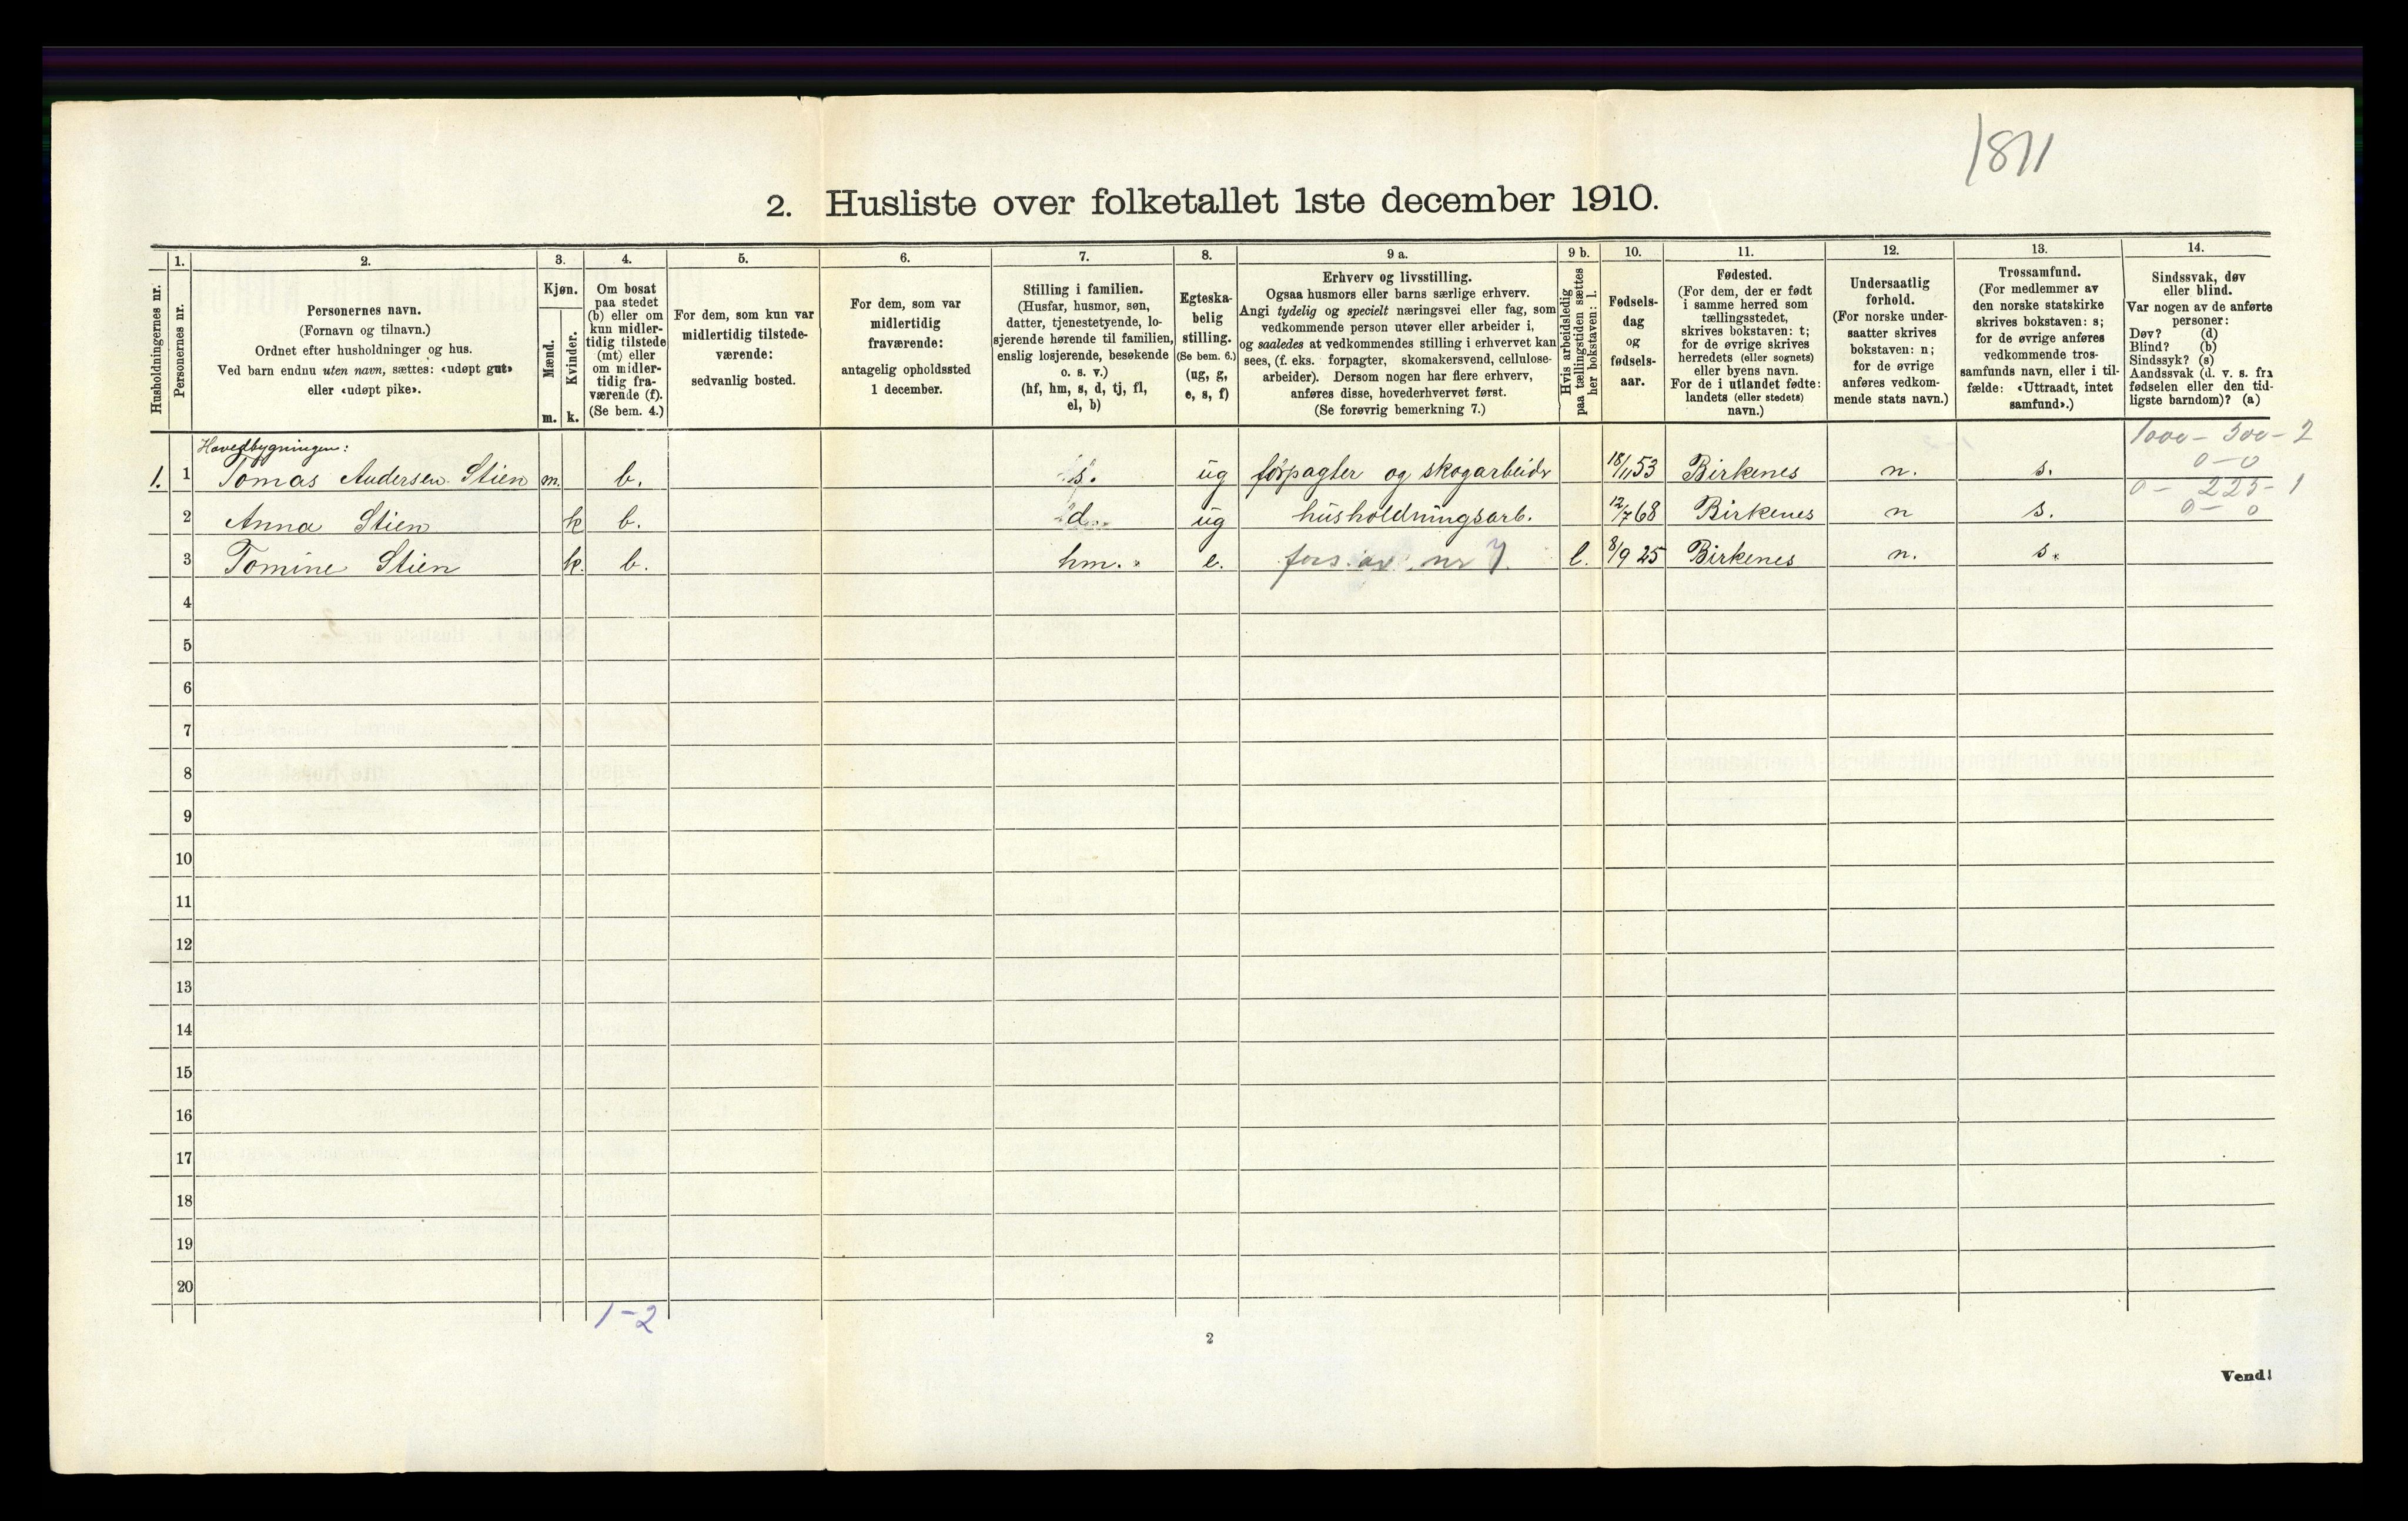 1811
2. Husliste over folketallet 1ste december 1910.
Husholdningernes nr.
1.
Personernes nr.
2.
Personernes navn.
(Fornavn og tilnavn.)
Ordnet efter husholdninger og hus.
Ved barn endnu uten navn, sættes: «udøpt gut»
eller «udøpt pike».
3.
Kjøn.
Mænd.
Kvinder.
m.
k.
4.
Om bosat
paa stedet
(b) eller om
kun midler-
tidig tilstede
(mt) eller
om midler-
tidig fra-
værende (f).
(Se bem. 4.)
5.
For dem, som kun var
midlertidig tilstede-
værende:
sedvanlig bosted.
6.
For dem, som var
midlertidig
fraværende:
antagelig opholdssted
1 december.
7.
Stilling i familien.
(Husfar, husmor, søn,
datter, tjenestetyende, lo-
sjerende hørende til familien,
enslig losjerende, besøkende
o. s. v.)
(hf, hm, s, d, tj, fl,
el, b)
8.
Egteska-
belig
stilling.
(Se bem. 6.)
(ug, g,
e, s, f)
9 a.
Erhverv og livsstilling.
Ogsaa husmors eller barns særlige erhverv.
Angi tydelig og specielt næringsvei eller fag, som
vedkommende person utøver eller arbeider i,
og saaledes at vedkommendes stilling i erhvervet kan
sees, (f. eks. forpagter, skomakersvend, cellulose-
arbeider). Dersom nogen har flere erhverv,
anføres disse, hovederhvervet først.
(Se forøvrig bemerkning 7.)
9 b.
Hvis arbeidsledig
paa tællingstiden sættes
her bokstaven: l.
10.
Fødsels-
dag
og
fødsels-
aar.
11.
Fødested.
(For dem, der er født
i samme herred som
tællingsstedet,
skrives bokstaven: t;
for de øvrige skrives
herredets (eller sognets)
eller byens navn.
For de i utlandet fødte:
landets (eller stedets)
navn.)
12.
Undersaatlig
forhold.
(For norske under-
saatter skrives
bokstaven: n;
for de øvrige
anføres vedkom-
mende stats navn.)
13.
Trossamfund.
(For medlemmer av
den norske statskirke
skrives bokstaven: s;
for de øvrige anføres
vedkommende tros-
samfunds navn, eller i til-
fælde: «Uttraadt, intet
samfund».)
14.
Sindssvak, døv
eller blind.
Var nogen av de anførte
personer:
Døv? (d)
Blind? (b)
Sindssyk? (s)
Aandssvak (d. v. s. fra
fødselen eller den tid-
ligste barndom)? (a)
Hovedbygningen:
1000 - 300 - 2
0 - 0
1. 1 Tomas Andersen Stien m. b. s. ug forpagter og skogarbeider 18/11 53 Birkenes n. s.
0 - 225 - 1
0 - 0
2 Anna Stien k b. d. ug husholdningsarb. 12/7 68 Birkenes n s.
3 Tomine Stien k. b. hm. e. fors. av nr 7. l. 8/9 25 Birkenes n. s.
4
5
6
7
8
9
10
11
12
13
14
15
16
17
18
19
20
1-2
2
Vend!